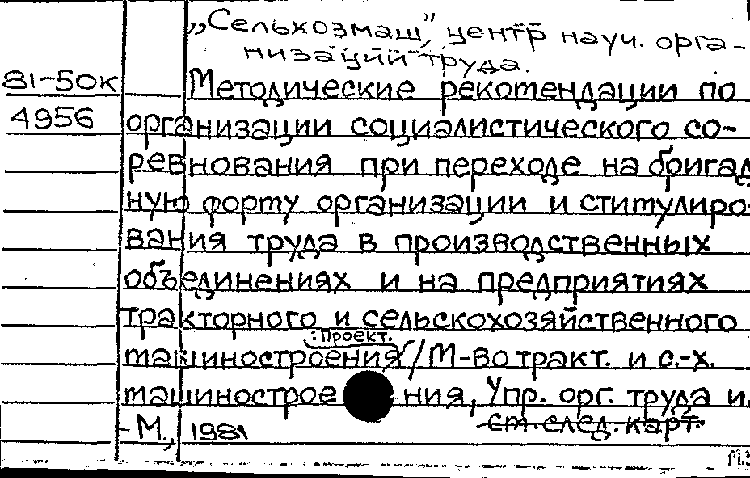 „Сельхозмаш”, центр науч. орга-
низации труда.
81-50к Методические рекомендации по
4956 организации социалистического со-
ревнования при переходе на бригад
ную форму организации и стимулиро-
вания труда в производственных
объединениях и на предприятиях
тракторного и сельскохозяйственного
: Проект.
машиностроения/М-во тракт. и с.-х.
машинострое ния, Упр. орг. труда и.
- М., 1981 ст. след. карт.